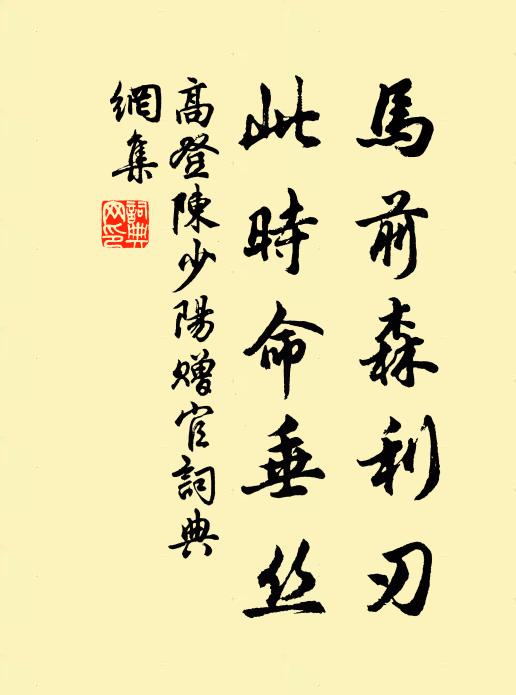 馬前森利刃
此時命垂丝
高登陳少陽贈官詞典
網集